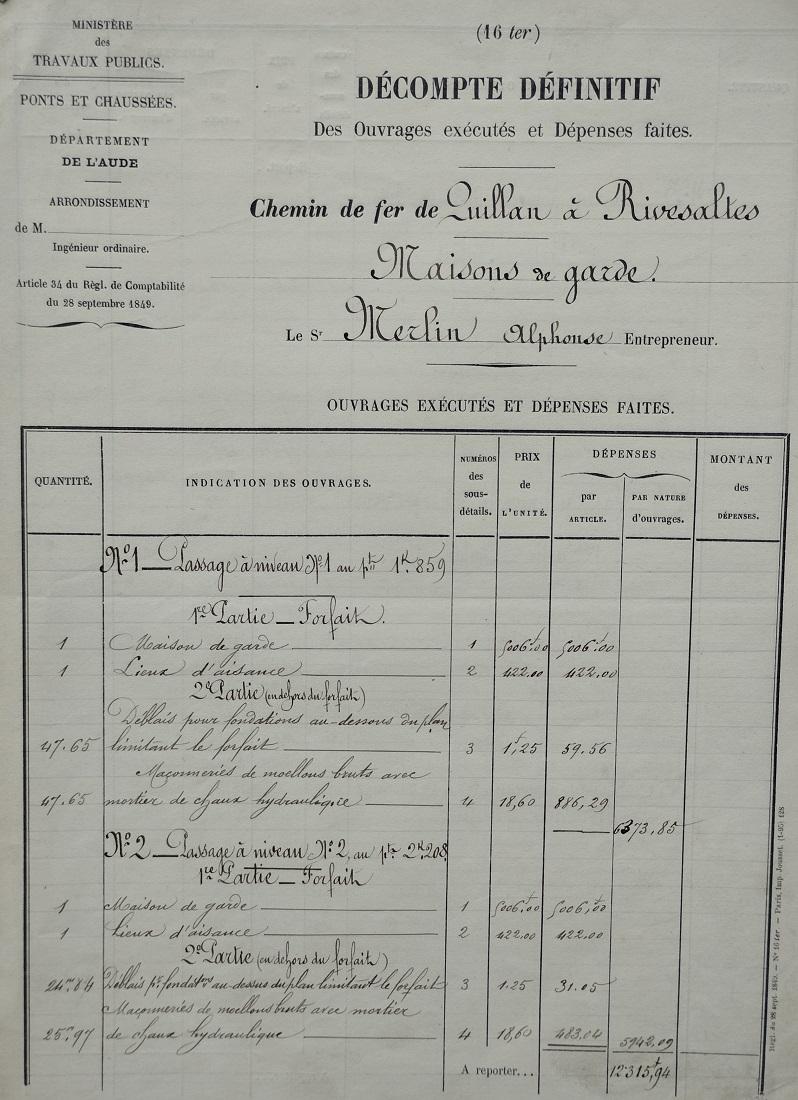 MINISTÈRE
des
TRAVAUX PUBLICS.
PONTS ET CHAUSSÉES.
DÉPARTEMENT
DE L'AUDE
ARRONDISSEMENT
de M.
Ingénieur ordinaire.
Article 34 du Règl. de Comptabilité
du 28 septembre 1849.
(16 ter)
DÉCOMPTE DÉFINITIF
Des Ouvrages exécutés et Dépenses faites.
Chemin de fer de Quillan à Rivesaltes
Maisons de garde.
Le Sr Merlin Alphonse Entrepreneur.
OUVRAGES EXÉCUTÉS ET DÉPENSES FAITES.
QUANTITÉ. INDICATION DES OUVRAGES. NUMÉROS des sous-détails. PRIX de L'UNITÉ. DÉPENSES par ARTICLE. PAR NATURE d'ouvrages. MONTANT des DÉPENSES.
No 1 — Passage à niveau No 1 au pt 1k.859
1re Partie — Forfait.
1 Maison de garde 1 5006f.00 5006f.00
1 Lieux d'aisance 2 422.00 422.00
2e Partie (en dehors du forfait)
Déblais pour fondations au-dessous du plan
47.65 limitant le forfait 3 1f,25 59.56
Maçonneries de moellons bruts avec
47.65 mortier de chaux hydraulique 4 18,60 886,29
6373,85
No 2 — Passage à niveau No 2, au pt 2k.208
1re Partie — Forfait
1 Maison de garde 1 5006f.00 5006f,00
1 Lieux d'aisance 2 422.00 422.00
2e Partie (en dehors du forfait)
24m.84 Déblais pr fondatons au-dessus du plan limitant le forfait 3 1.25 31.05
Maçonneries de moellons bruts avec mortier
25m.97 de chaux hydraulique 4 18,60 483,04 5942,09
A reporter... 12315f,94
Règl. du 28 sept. 1849. — No 16 ter. — Paris, Imp. Jousset. (1-95) 128